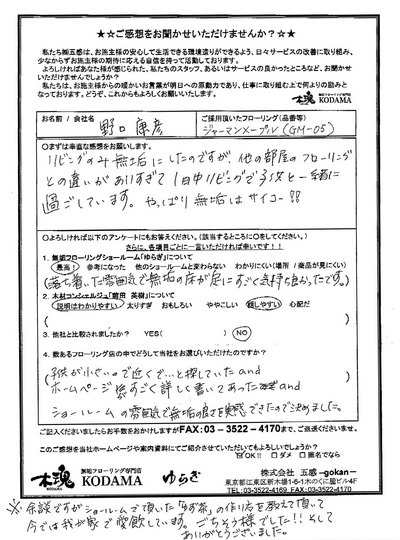 ★☆ご感想をお聞かせいただけませんか？☆★
私たち㈱五感は、お施主様の安心して生活できる環境造りができるよう、日々サービスの改善に取り組み、
少なからずお施主様の期待に応える自信を持って活動しております。
よろしければあなた様が感じられた、私たちのスタッフ、あるいはサービスの良かったところなど、お聞かせ
いただけませんでしょうか？
私たちは、お施主様からの暖かいお言葉が明日への原動力であり、仕事に取り組む上で何よりの励みと
なっております。どうぞ、これからもよろしくお願いいたします。
無垢フローリング専門店
木魂 KODAMA
お名前 / 会社名
野口 康彦
ご採用頂いたフローリング(品番等)
ジャーマンメープル(GM-05)
〇まずは率直な感想をお願いします。
リビングのみ無垢にしたのですが、他の部屋のフローリング
との違いがありすぎて1日中リビングで子供と一緒に
過ごしています。やっぱり無垢はサイコー!!
〇よろしければ以下のアンケートにもお答えください。(該当するところに〇をしてください。)
さらに、各項目ごとに一言いただければ幸いです！！
1. 無垢フローリングショールーム「ゆらぎ」について
最高！ 参考になった 他のショールームと変わらない わかりにくい(場所 / 商品が見にくい)
(落ち着いた雰囲気で無垢の床が足にすごく気持ち良かったです。)
2. 木材コンシェルジュ「前田 英樹」について
説明はわかりやすい 太りすぎ おもしろい ややこしい 話しやすい 心配だ
( )
3. 他社と比較されましたか？ YES( ) NO
4. 数あるフローリング店の中でどうして当社をお選びいただけたのですか？
子供が小さいので近くで…と探していた and
ホームページがすごく詳しく書いてあった and
ショールームの雰囲気で無垢の良さを実感できたので決めました。
ご記入くださいましたらお手数をおかけしますがFAX:03-3522-4170まで、ご返送くださいませ。
このご感想を当社ホームページや案内資料にてご紹介させていただいてもよろしいでしょうか？
☑OK!! □ダメ □匿名でなら
木魂 無垢フローリング専門店 KODAMA ゆらぎ
株式会社 五感 -gokan-
東京都江東区新木場1-6-1木のくに屋ビル4F
TEL:03-3522-4169 FAX:03-3522-4170
※余談ですがショールームで頂いた「ゆず茶」の作り方を教えて頂いて
今では我が家で愛飲しています。ごちそう様でした!!そして
ありがとうございました。